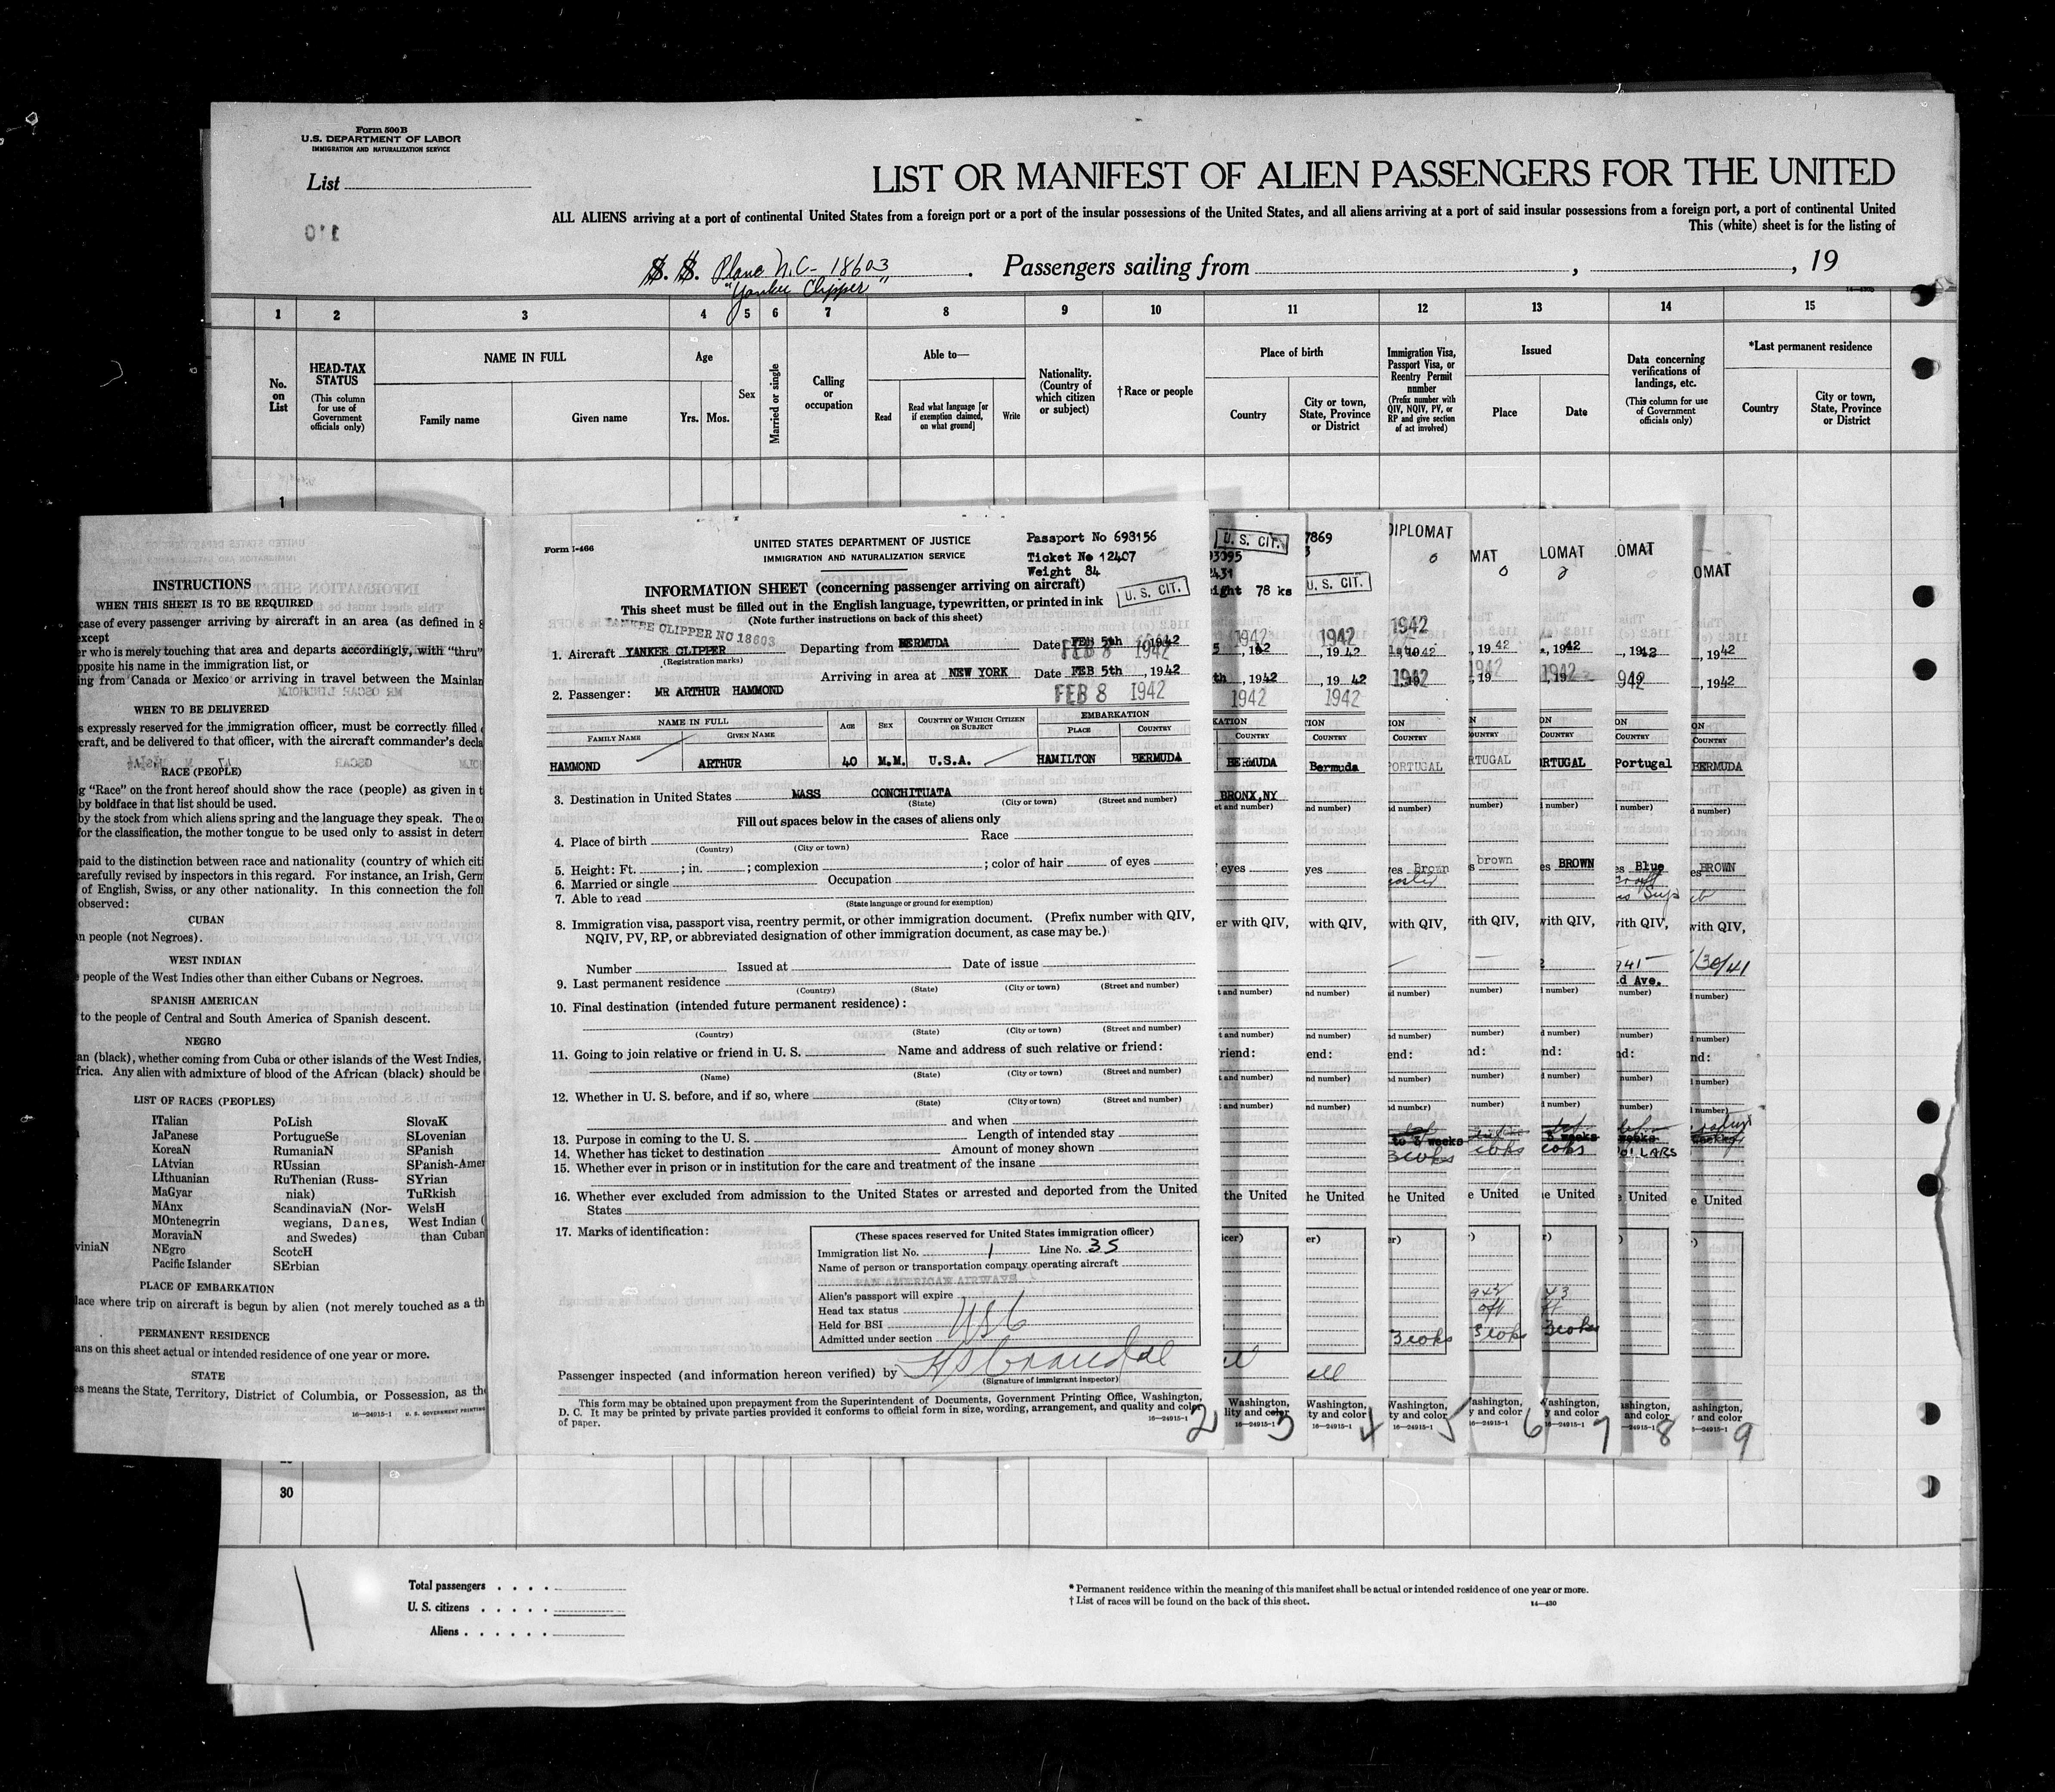 Form 500B
U.S. DEPARTMENT OF LABOR
IMMIGRATION AND NATURALIZATION SERVICE
List
LIST OR MANIFEST OF ALIEN PASSENGERS FOR THE UNITED
ALL ALIENS arriving at a port of continental United States from a foreign port or a port of the insular possessions of the United States, and all aliens arriving at a port of said insular possessions from a foreign port, a port of continental United
This (white) sheet is for the listing of
S. S. Plane N.C- 18603 . Passengers sailing from , , 19
"Yankee Clipper"
1 2 3 4 5 6 7 8 9 10 11 12 13 14 15
No. on List
HEAD-TAX STATUS
(This column for use of Government officials only)
NAME IN FULL
Family name Given name
Age
Yrs. Mos.
Sex
Married or single
Calling or occupation
Able to—
Read
Read what language [or if exemption claimed, on what ground]
Write
Nationality. (Country of which citizen or subject)
†Race or people
Place of birth
Country
City or town, State, Province or District
Immigration Visa, Passport Visa, or Reentry Permit number
(Prefix number with QIV, NQIV, PV, or RP and give section of act involved)
Issued
Place Date
Data concerning verifications of landings, etc.
(This column for use of Government officials only)
*Last permanent residence
Country
City or town, State, Province or District
1
INSTRUCTIONS
WHEN THIS SHEET IS TO BE REQUIRED
case of every passenger arriving by aircraft in an area (as defined in 8
except
er who is merely touching that area and departs accordingly, with "thru"
pposite his name in the immigration list, or
ing from Canada or Mexico or arriving in travel between the Mainlan
WHEN TO BE DELIVERED
s expressly reserved for the immigration officer, must be correctly filled
craft, and be delivered to that officer, with the aircraft commander's decla
RACE (PEOPLE)
g "Race" on the front hereof should show the race (people) as given in t
by boldface in that list should be used.
by the stock from which aliens spring and the language they speak. The or
for the classification, the mother tongue to be used only to assist in deterr
paid to the distinction between race and nationality (country of which citi
carefully revised by inspectors in this regard. For instance, an Irish, Gern
of English, Swiss, or any other nationality. In this connection the foll
observed:
CUBAN
n people (not Negroes).
WEST INDIAN
people of the West Indies other than either Cubans or Negroes.
SPANISH AMERICAN
to the people of Central and South America of Spanish descent.
NEGRO
an (black), whether coming from Cuba or other islands of the West Indies,
frica. Any alien with admixture of blood of the African (black) should be
LIST OF RACES (PEOPLES)
ITalian PoLish SlovaK
JaPanese PortugueSe SLovenian
KoreaN RumaniaN SPanish
LAtvian RUssian SPanish-Amer
LIthuanian RuThenian (Russ- SYrian
MaGyar niak) TuRkish
MAnx ScandinaviaN (Nor- WelsH
MOntenegrin wegians, Danes, West Indian (
MoraviaN and Swedes) than Cuban
viniaN NEgro ScotcH
Pacific Islander SErbian
PLACE OF EMBARKATION
lace where trip on aircraft is begun by alien (not merely touched as a th
PERMANENT RESIDENCE
ans on this sheet actual or intended residence of one year or more.
STATE
es means the State, Territory, District of Columbia, or Possession, as the
16—24915-1 U. S. GOVERNMENT PRINTING
Form I-466
UNITED STATES DEPARTMENT OF JUSTICE
IMMIGRATION AND NATURALIZATION SERVICE
Passport No 698156
Ticket No 12407
Weight 84
U. S. CIT.
INFORMATION SHEET (concerning passenger arriving on aircraft)
This sheet must be filled out in the English language, typewritten, or printed in ink
(Note further instructions on back of this sheet)
YANKEE CLIPPER NO 18603
1. Aircraft YANKEE CLIPPER Departing from BERMUDA Date FEB 5th , 1942
(Registration marks)
FEB 8 1942
Arriving in area at NEW YORK Date FEB 5th , 1942
2. Passenger: MR ARTHUR HAMMOND
FEB 8 1942
NAME IN FULL AGE SEX COUNTRY OF WHICH CITIZEN OR SUBJECT EMBARKATION
FAMILY NAME GIVEN NAME PLACE COUNTRY
HAMMOND ARTHUR 40 M.M. U.S.A. HAMILTON BERMUDA
3. Destination in United States MASS CONCHITUATA
(State) (City or town) (Street and number)
Fill out spaces below in the cases of aliens only
4. Place of birth Race
(Country) (City or town)
5. Height: Ft. ; in. ; complexion ; color of hair of eyes
6. Married or single Occupation
7. Able to read
(State language or ground for exemption)
8. Immigration visa, passport visa, reentry permit, or other immigration document. (Prefix number with QIV,
NQIV, PV, RP, or abbreviated designation of other immigration document, as case may be.)
Number Issued at Date of issue
9. Last permanent residence
(Country) (State) (City or town) (Street and number)
10. Final destination (intended future permanent residence):
(Country) (State) (City or town) (Street and number)
11. Going to join relative or friend in U. S. Name and address of such relative or friend:
(Name) (State) (City or town) (Street and number)
12. Whether in U. S. before, and if so, where
(State) (City or town) (Street and number)
and when
13. Purpose in coming to the U. S. Length of intended stay
14. Whether has ticket to destination Amount of money shown
15. Whether ever in prison or in institution for the care and treatment of the insane
16. Whether ever excluded from admission to the United States or arrested and deported from the United
States
17. Marks of identification:
(These spaces reserved for United States immigration officer)
Immigration list No. 1 Line No. 35
Name of person or transportation company operating aircraft
PAN AMERICAN AIRWAYS
Alien's passport will expire
Head tax status
Held for BSI
Admitted under section
USC
Passenger inspected (and information hereon verified) by
(Signature of immigrant inspector)
This form may be obtained upon prepayment from the Superintendent of Documents, Government Printing Office, Washington,
D. C. It may be printed by private parties provided it conforms to official form in size, wording, arrangement, and quality and color
of paper.
16—24915-1
2 3 4 5 6 7 8 9
U. S. CIT.
78 ks
BERMUDA
BRONX, NY
7869
U. S. CIT.
Bermuda
DIPLOMAT
PORTUGAL
Brown
brown
BROWN
Portugal
Blue
BERMUDA
BROWN
30
Total passengers . . . .
U. S. citizens . . . . .
Aliens . . . . . .
* Permanent residence within the meaning of this manifest shall be actual or intended residence of one year or more.
† List of races will be found on the back of this sheet.
14—430